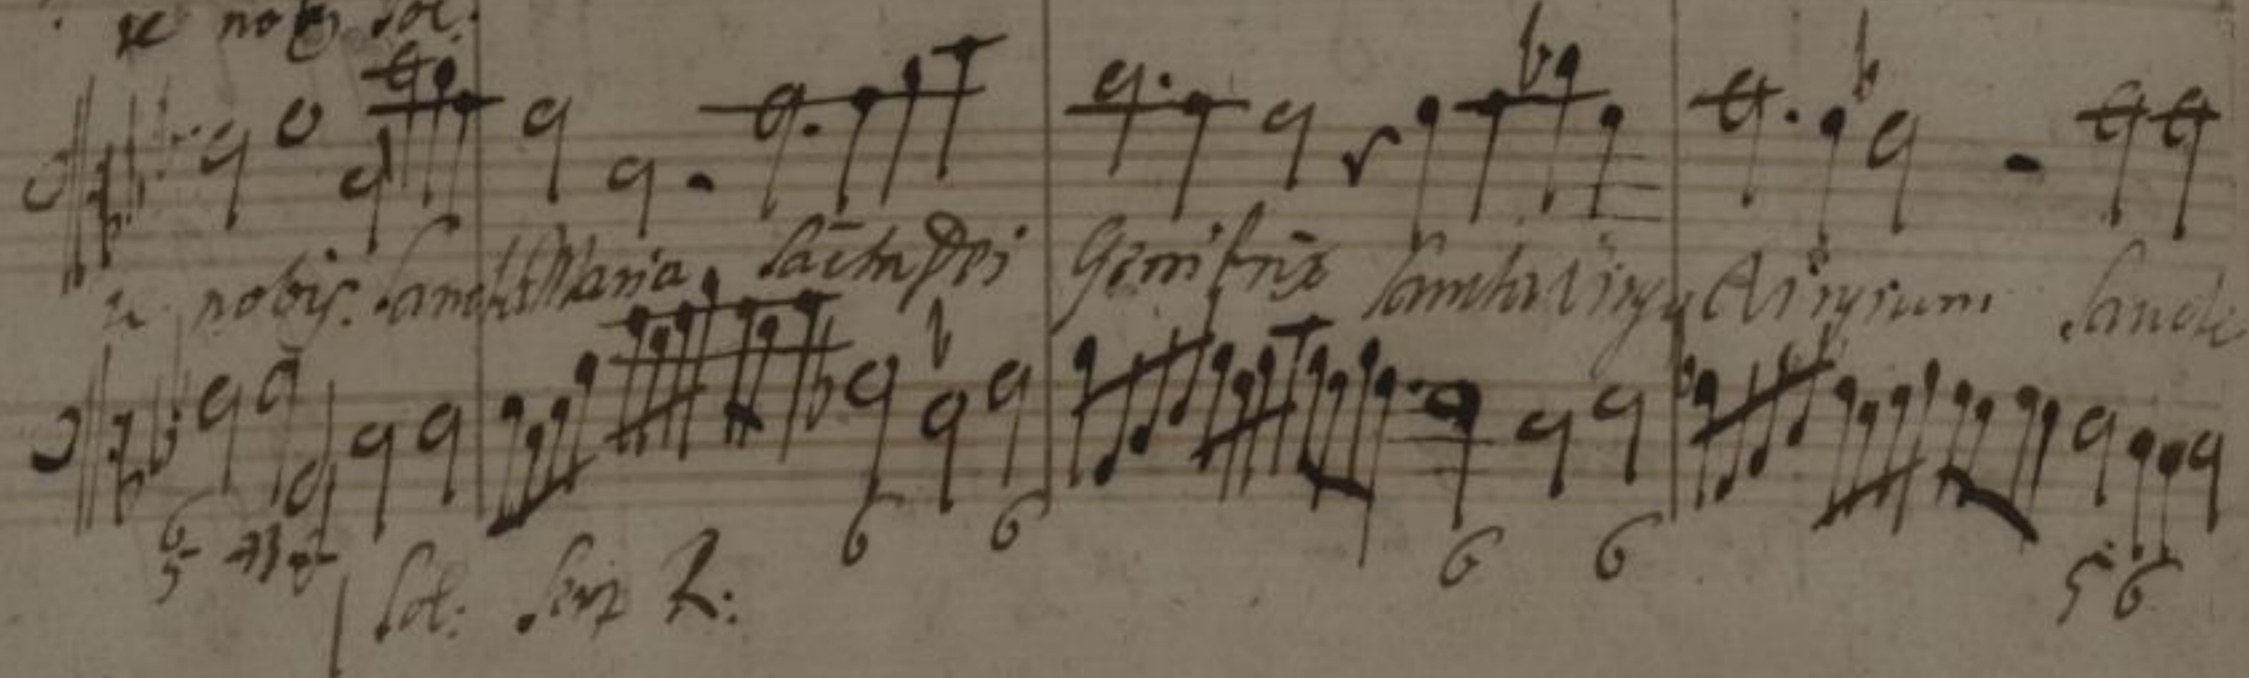 re nobis Sol:
re nobis. Sancta Maria Sancta Dei Genitrix Sancta Virgo Virginum Sancte
6 6 6 6 5 6
6 5
Sol: